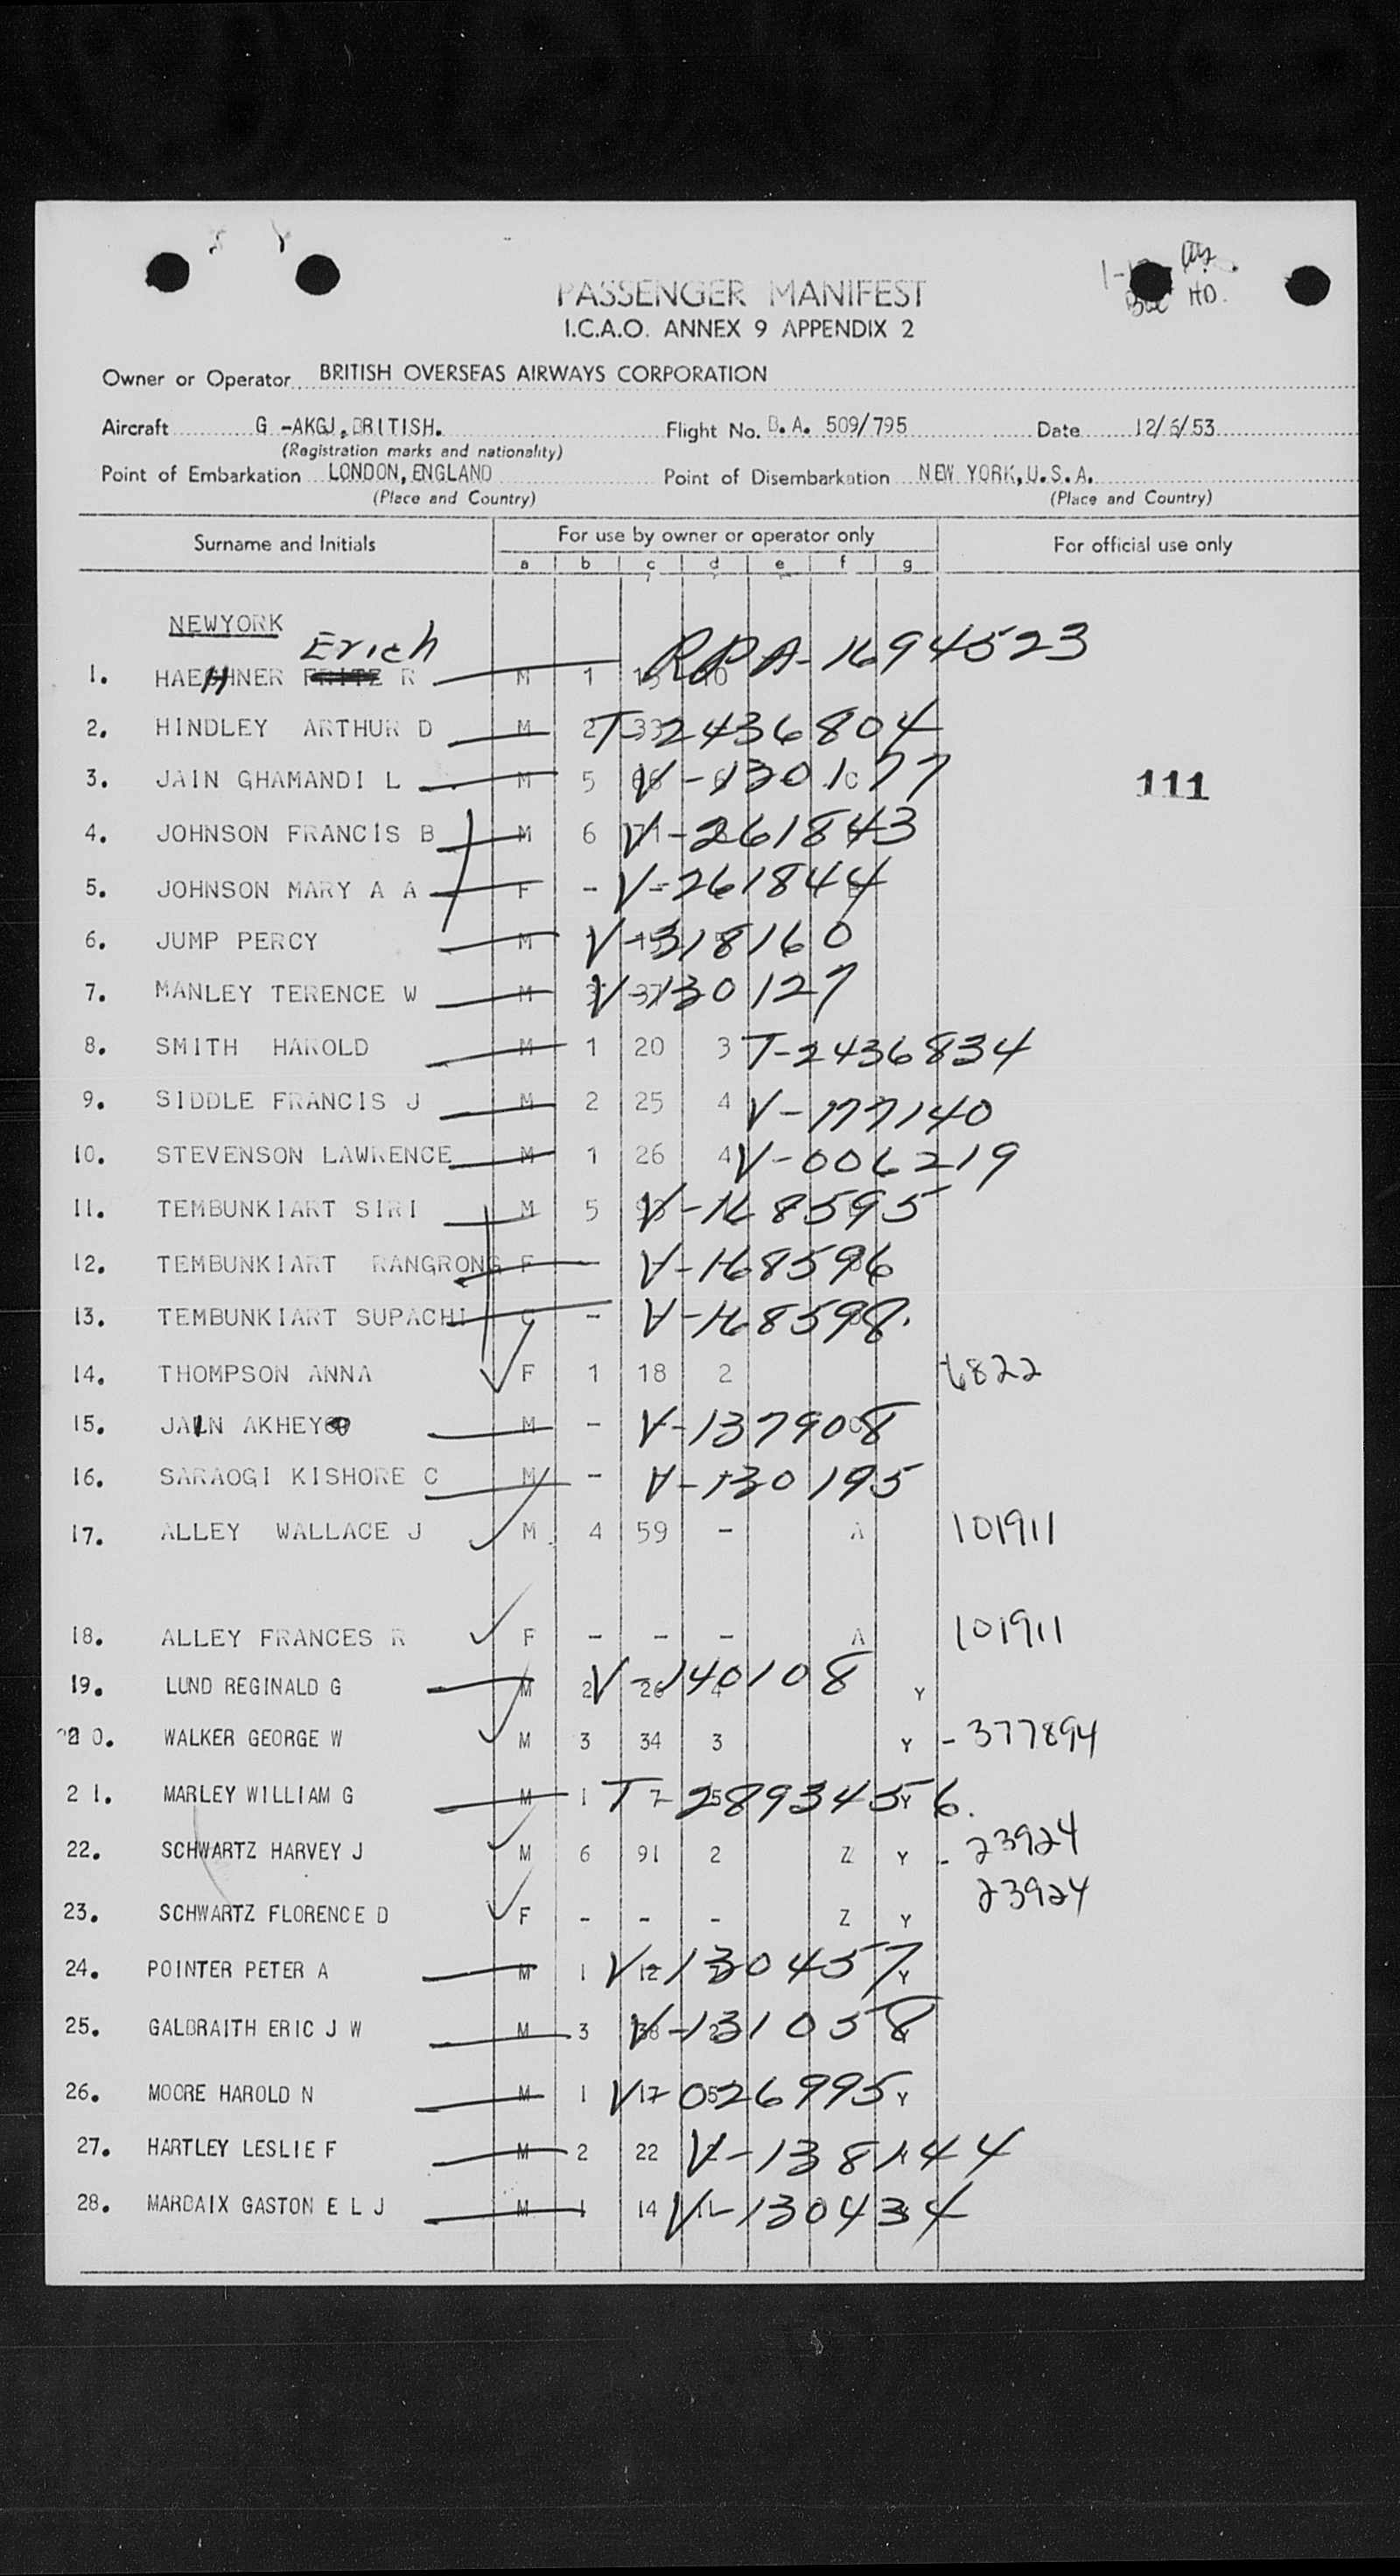 1-
HD.
PASSENGER MANIFEST
I.C.A.O. ANNEX 9 APPENDIX 2
Owner or Operator BRITISH OVERSEAS AIRWAYS CORPORATION
Aircraft G -AKGJ, BRITISH. Flight No. B.A. 509/795 Date 12/6/53
(Registration marks and nationality)
Point of Embarkation LONDON, ENGLAND Point of Disembarkation NEW YORK, U.S.A.
(Place and Country) (Place and Country)
Surname and Initials For use by owner or operator only For official use only
a b c d e f g
NEWYORK
Erich
1. HAEHNER R M 1 RPA-1694523
2. HINDLEY ARTHUR D M 2 33 T-2436804
3. JAIN GHAMANDI L M 5 C V-130177 111
4. JOHNSON FRANCIS B M 6 71 V-261843
5. JOHNSON MARY A A F - V-261844
6. JUMP PERCY M V-318160
7. MANLEY TERENCE W M 37 V-130127
8. SMITH HAROLD M 1 20 3 T-2436834
9. SIDDLE FRANCIS J M 2 25 4 V-177140
10. STEVENSON LAWRENCE M 1 26 4 V-006219
11. TEMBUNKIART SIRI M 5 V-168595
12. TEMBUNKIART RANGRONG F - V-168596
13. TEMBUNKIART SUPACHI C - V-168598.
14. THOMPSON ANNA F 1 18 2 6822
15. JAIN AKHEY M - V-137908
16. SARAOGI KISHORE C M - V-130195
17. ALLEY WALLACE J M 4 59 - A 101911
18. ALLEY FRANCES R F - - - A 101911
19. LUND REGINALD G M 2 26 4 V-140108 Y
20. WALKER GEORGE W M 3 34 3 Y - 377894
21. MARLEY WILLIAM G M 1 7 5 T-2893456. Y
22. SCHWARTZ HARVEY J M 6 91 2 Z Y - 23924
23. SCHWARTZ FLORENCE D F - - - Z Y 23924
24. POINTER PETER A M 1 12 V-130457 Y
25. GALBRAITH ERIC J W M 3 38 V-131058
26. MOORE HAROLD N M 1 17 5 V-026995 Y
27. HARTLEY LESLIE F M 2 22 V-138144
28. MARBAIX GASTON E L J M 1 14 V-130434